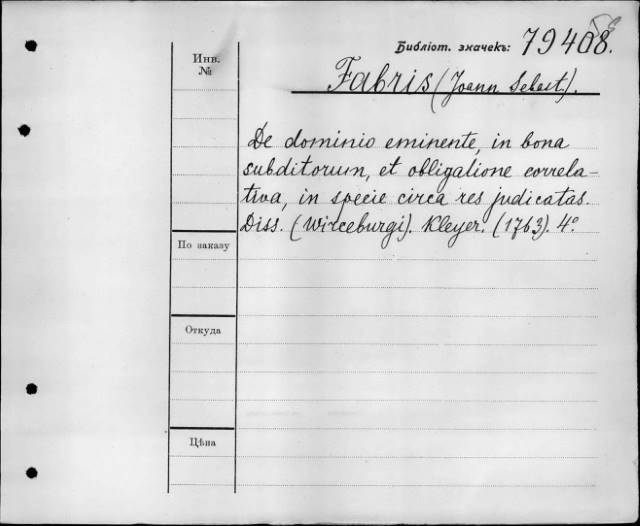 Библіот. значекъ: 79408.
Инв. №
Fabris (Joann Sebast.).
De dominio eminente, in bona
subditorum, et obligatione correla-
tiva, in specie circa res judicatas.
Diss. (Wirceburgi). Kleyer. (1763). 4°.
По заказу
Откуда
Цѣна